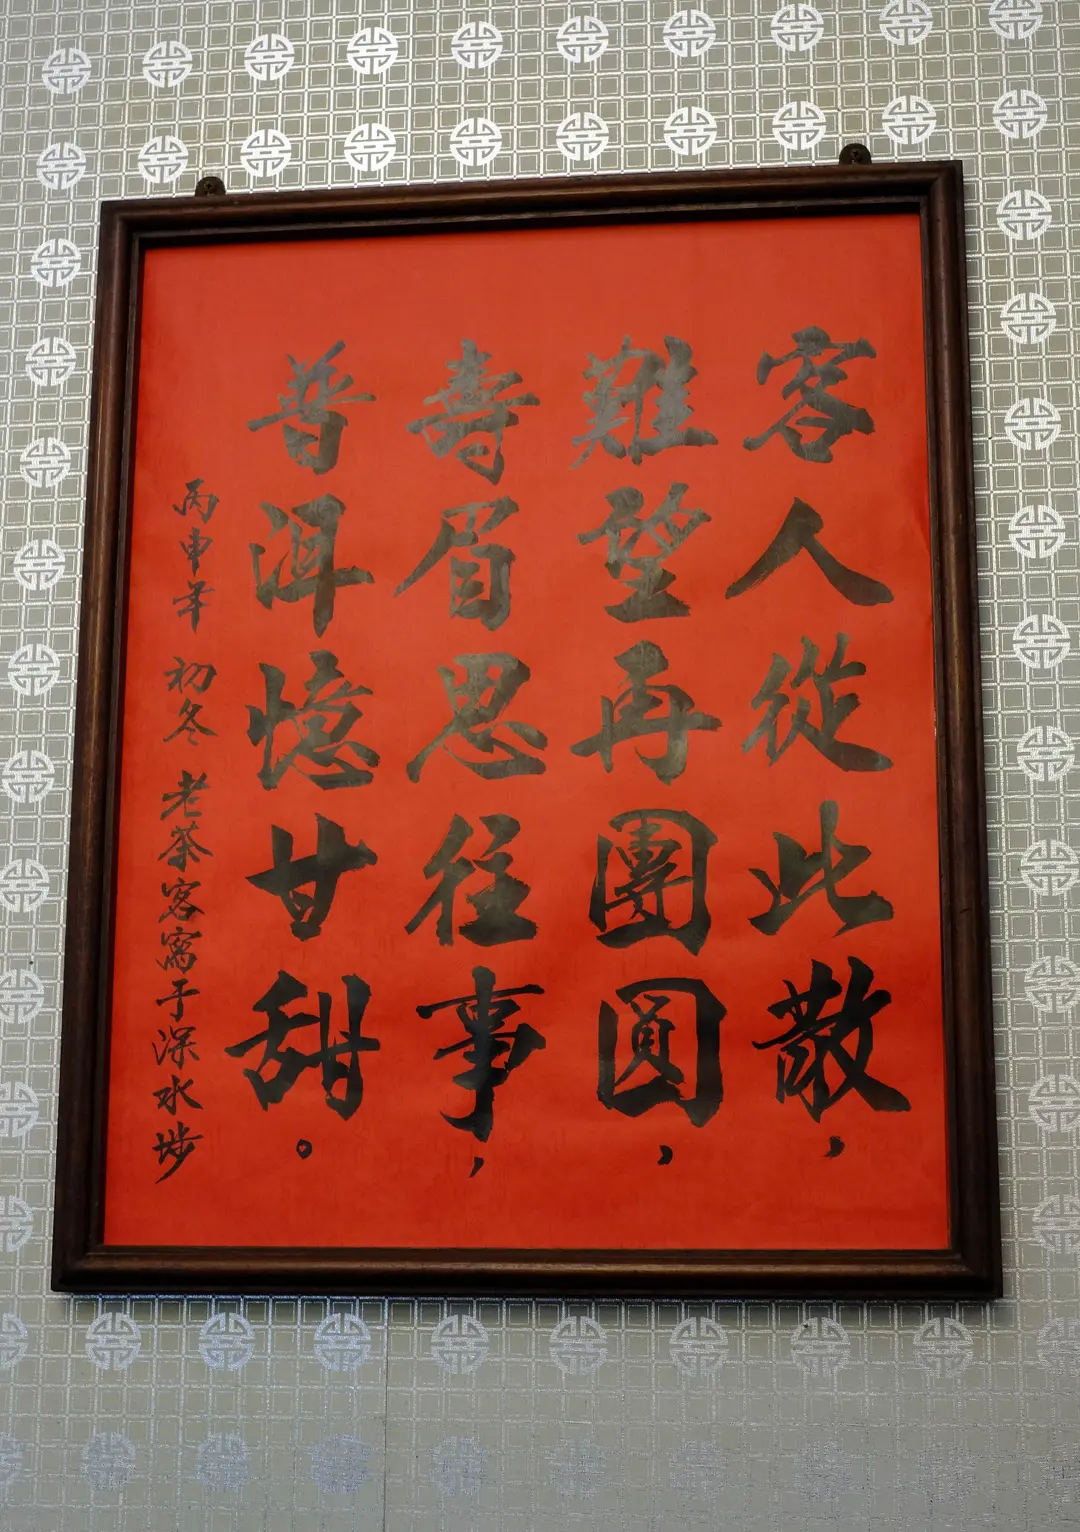 客人從此散，
難望再團圓，
壽眉思往事，
普洱憶甘甜。
丙申年 初冬 老茶客寫于深水埗